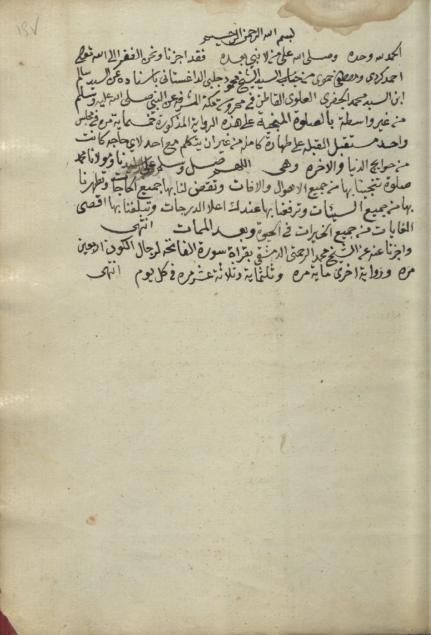 ١٩٧
بسم الله الرحمن الرحيم
الحمد لله وحده وصلى الله على من لا نبي بعده فقد اجزنا ونحن الفقر الى الله تعالى
احمد كردي ومصطفى حموى من جناب السيد الشيخ محمود جلبي الداغستاني باسناده عن السيد سالم
ابن السيد محمد الجفري العلوى القاطن في محروس مكة المشرفة عن النبي صلى الله عليه وسلم
من غير واسطة بالصلوة المنجية على هذه الرواية المذكورة خمسماية مره في مجلس
واحد مستقبل القبلة على طهارة كاملة من غير ان يتكلم مع احد لاي حاجة كانت
من حوايج الدنيا والاخره وهي اللهم صل وسلم على سيدنا ومولانا محمد
صلوة تنجينا بها من جميع الاهوال والافات وتقضى لنا بها جميع الحاجات وتطهرنا
بها من جميع السيئات وترفعنا بها عندك اعلا الدرجات وتبلغنا بها اقصى
الغايات من جميع الخيرات في الحيوة وبعد الممات انتهى
واجزنا عنه عن الشيخ محمد الرحمتى الدمشقي بقراة سورة الفاتحة لرجال الكون اربعين
مره وزواية اخرى ماية مره وثلثماية وثلاثة عشر مره في كل يوم انتهى